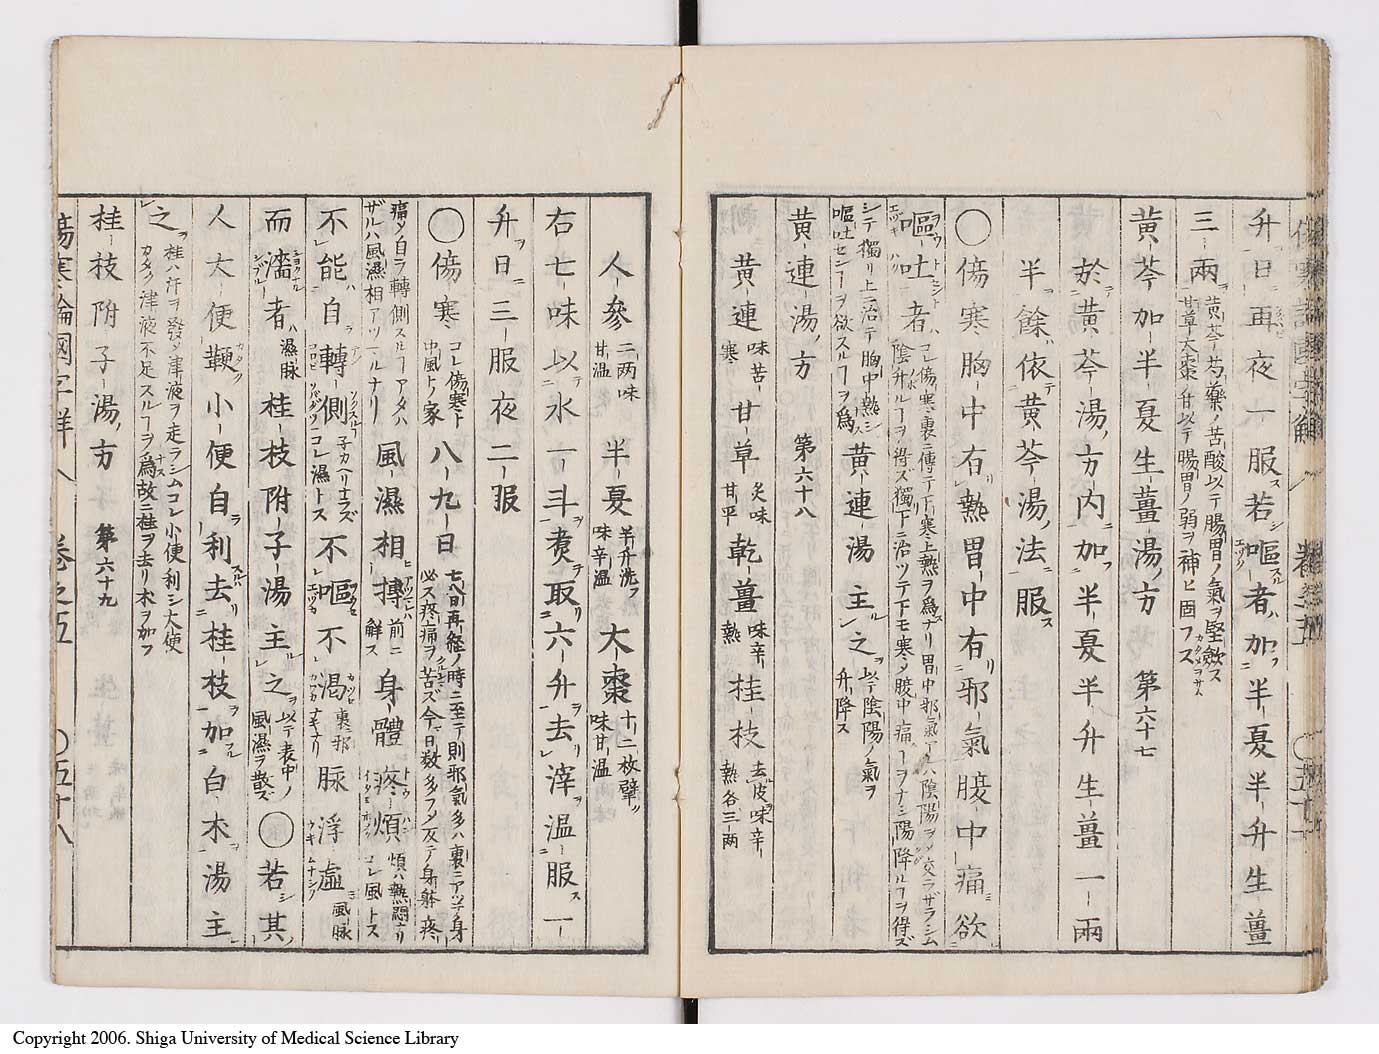 升日再夜一服若嘔者加半夏半升生薑
三兩 黄芩芍藥ノ苦酸以テ腸胃ノ氣ヲ堅斂ス
甘草大棗ノ甘以テ腸胃ノ弱ヲ補ヒ固フス
黄芩加半夏生薑湯ノ方 第六十七
於黄芩湯ノ方内加半夏半升生薑一兩
半餘依黄芩湯ノ法服ス
〇傷寒胸中有熱胃中有邪氣腹中痛欲
嘔吐者 コレ傷寒裏ニ傳テ下寒上熱ヲ為スナリ胃中邪氣アレハ陰陽ヲシメ交ラザラシム
陰升ルーヲ得ズ獨下ニ治ツテ下モ寒メ腹中痛ーヲナシ陽降ルーヲ得ズ
シテ獨リ上ニ治テ胸中熱シ
嘔吐センーヲ欲スルーヲ為ス 黄連湯主之 以テ陰陽ノ氣ヲ
升降ス
黄連湯ノ方 第六十八
黄連 味苦寒 甘草 炙味甘平 乾薑 味辛熱 桂枝 去皮味辛熱各三兩
人參 二两味甘温 半夏 半升洗フ味辛温 大棗 十二枚擘ク味甘温
右七味以水一斗煑取六升去滓温服一
升日三服夜二服
〇傷寒 コレ傷寒ト
中風トノ家 八九日 七八日再経ノ時ニ至テ則邪氣多ハ裏ニアツテ身
必ス疼痛ヲ苦ズ今日数多フメ反テ身躰疼
痛メ自ラ轉側スルーアタハ
ザルハ風濕相アツマルナリ 風濕相摶 前ニ
解ス 身體疼煩 煩ハ熱悶ナリ
コレ風トス
不能自轉側 子カヘリナラズ
コレ濕トス 不嘔不渇 裏邪
ナキナリ 脉浮虚 風脉
而濇者 濕脉 桂枝附子湯主之 以テ表中ノ
風濕ヲ散ズ 〇若其
人大便鞕小便自利去桂枝加白朮湯主
之 桂ハ汗ヲ發メ津液ヲ走ラシムコレ小便利シ大便
カタク津液不足スルーヲ為故ニ桂ヲ去リ朮ヲ加フ
桂枝附子湯ノ方 第六十九
傷寒論國字解 卷之五 〇五十八
Copyright 2006. Shiga University of Medical Science Library